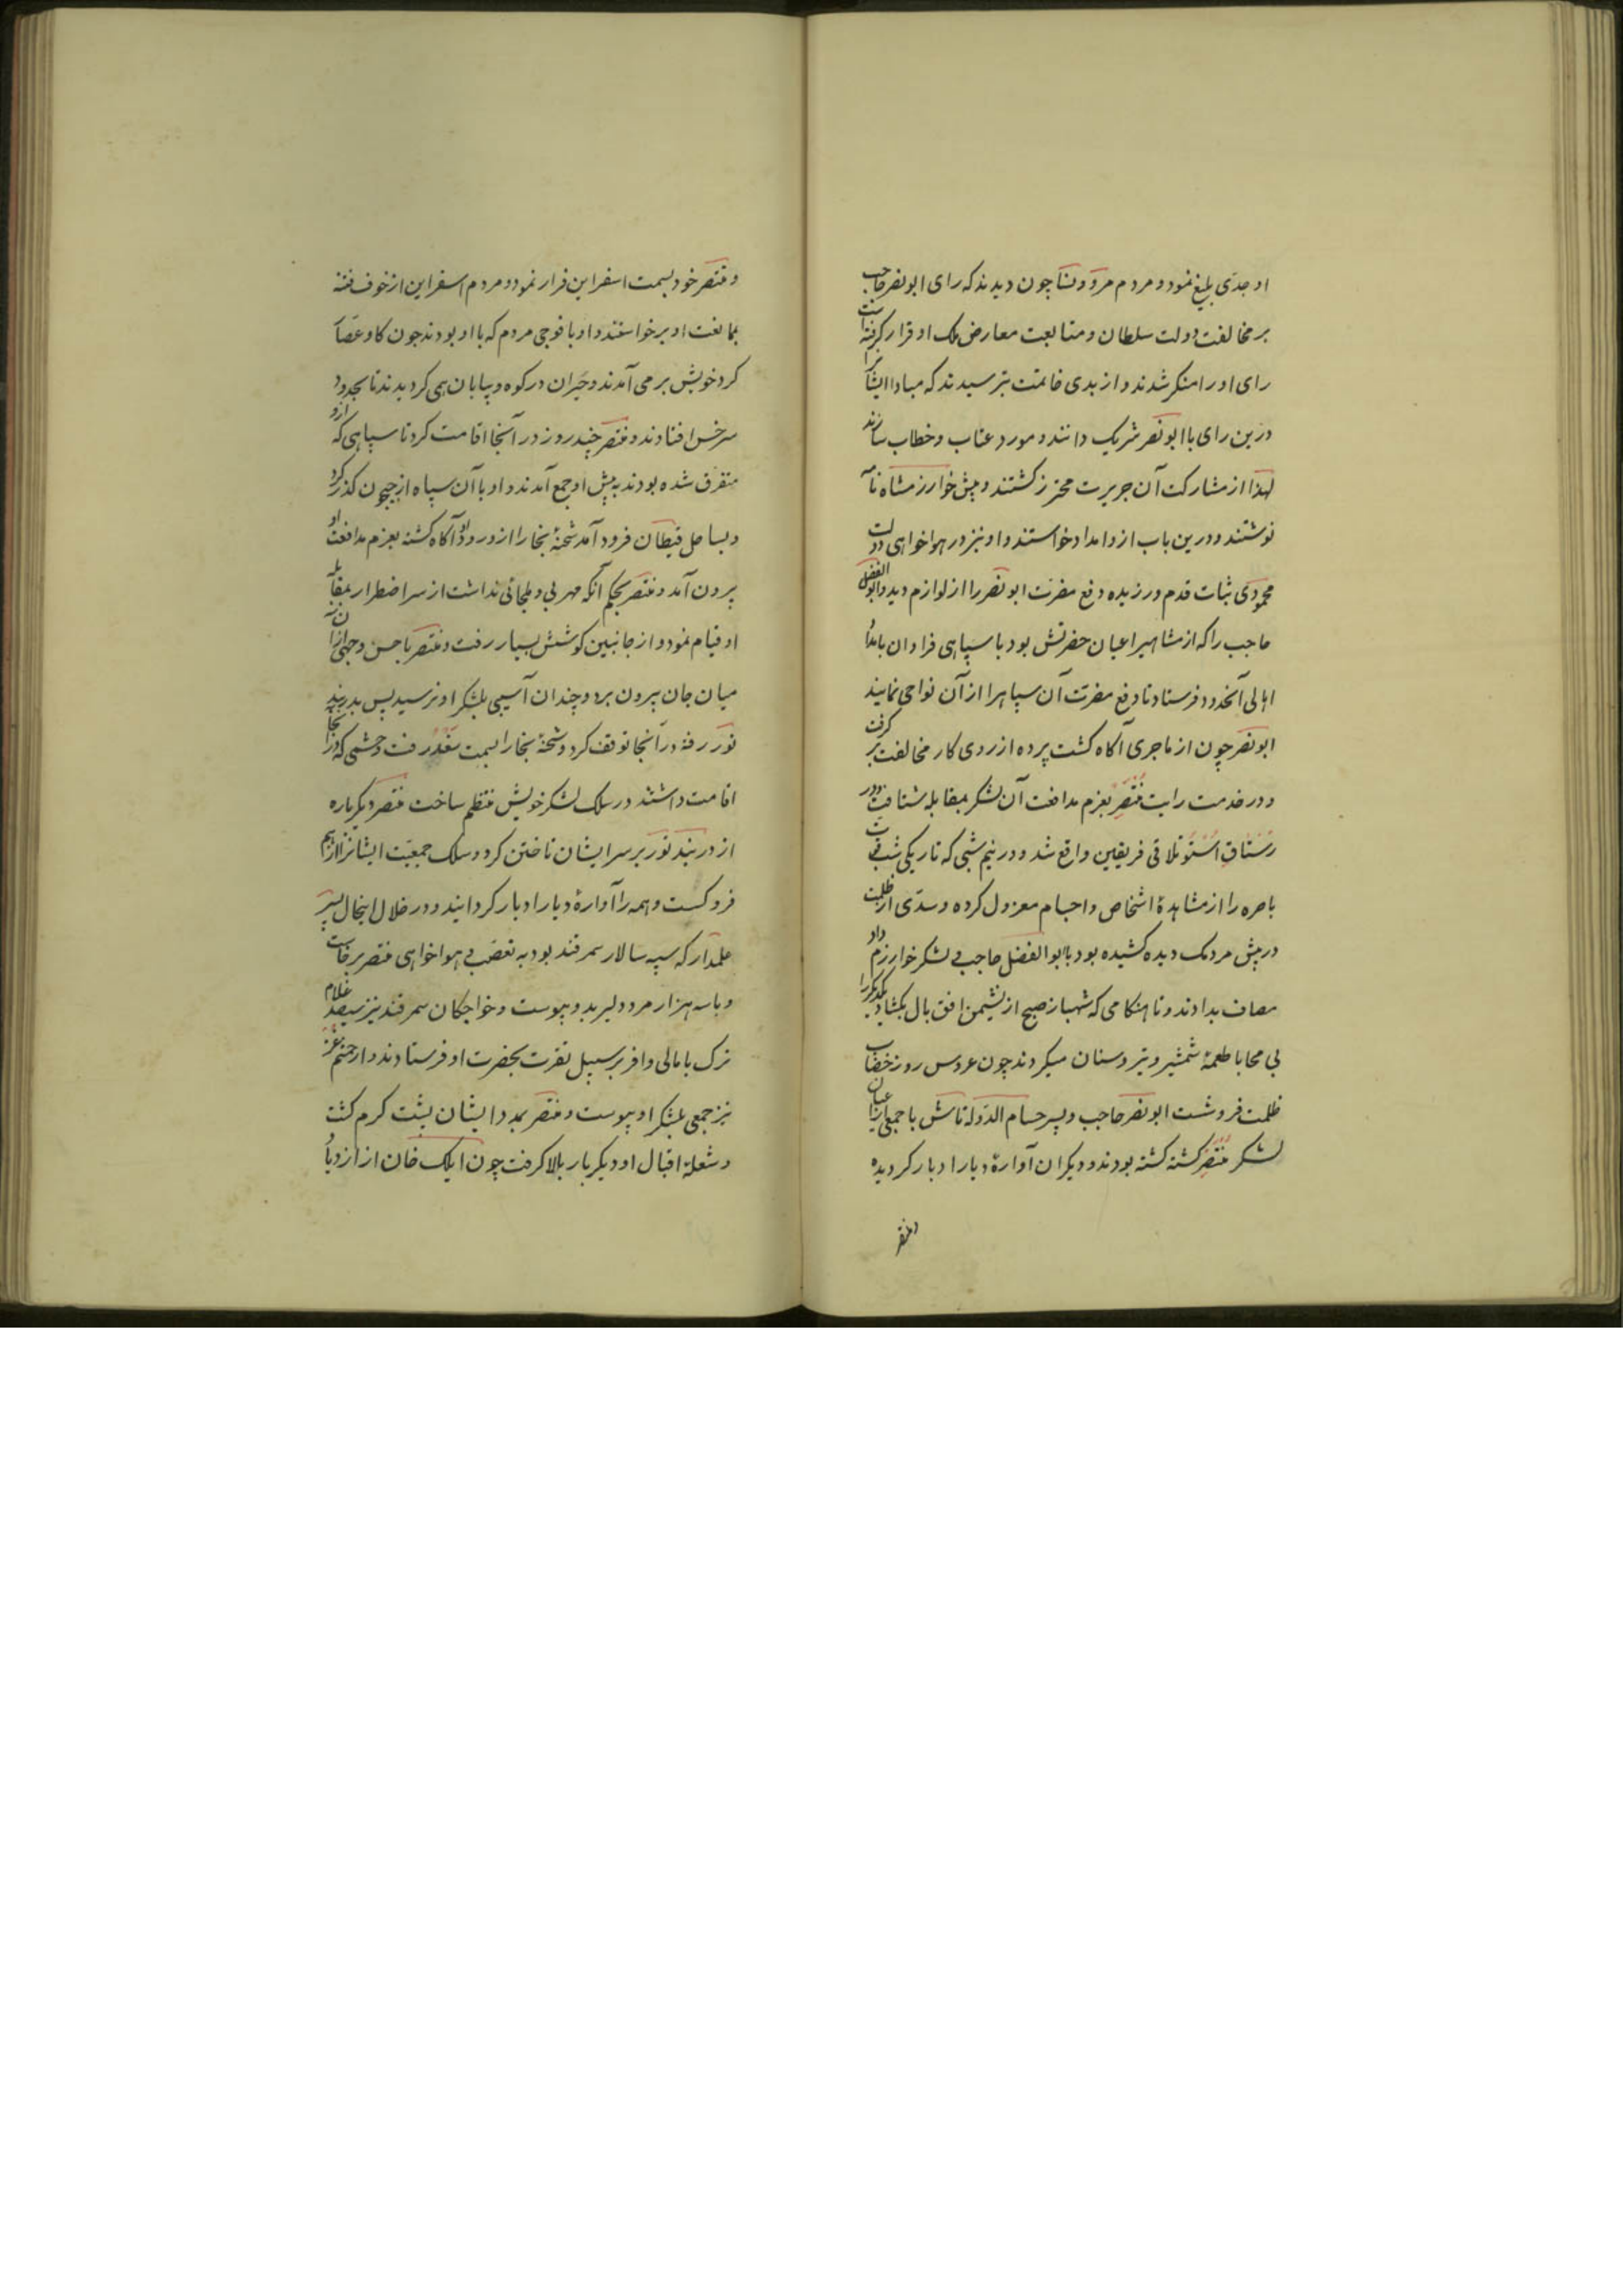 او جدّی بلیغ نمود و مردم مرو و نسا چون دیدند که رای ابونصر حاجب
بر مخالفت دولت سلطان و متابعت معارض ملک او قرار گرفته است
رای او را منکر شدند و از بدی خاتمت بترسیدند که مبادا ایشانرا
درین رای با ابونصر شریک دانند و مورد عتاب و خطاب سازند
لهذا از مشارکت آن جریرت محترز کشتند و پیش خوارزمشاه نامه
نوشتند و درین باب ازو امداد خواستند و او نیز در هواخواهی دولت
محمودی ثبات قدم ورزیده دفع مضرت ابونصر را از لوازم دید و ابوالفضل
حاجب را که از مشاهیر اعیان حضرتش بود با سپاهی فراوان بامداد
اهالی آنحدود فرستاد تا دفع مضرّت آن سپاه را از آن نواحی نمایند
ابونصر چون از ماجری آکاه کشت پرده از روی کار مخالفت بر گرفت
و در خدمت رایت منتصر بعزم مدافعت آن لشکر بمقابله شتافت و در
رستاق استو تلاقی فریقین واقع شد و در نیم شبی که تاریکی شب
باصره را از مشاهدهٔ اشخاص و اجسام معزول کرده و سدّی از ظلمت
در پیش مردمک دیده کشیده بود با ابوالفضل حاجب و لشکر خوارزم داد
مصاف بدادند و تا هنکامی که شهباز صبح از نشیمن افق بال بکشاد یکدیکر را
بی محابا طعمهٔ شمشیر و تیر و سنان میکردند چون عروس روز خضاب
ظلمت فروشست ابونصر حاجب و پسر حسام الدّوله تاش با جمعی از اعیان
لشکر منتصر کشته کشته بودند و دیکران آوارهٔ دیار ادبار کردیده
و منتصر
و منتصر خود بسمت اسفراین فرار نمود و مردم اسفراین از خوف فتنه
بممانعت او برخواستند و او با فوجی مردم که با او بودند چون کاو عصّار
کرد خویش برمی آمدند و حیران در کوه و بیابان همی کردیدند تا بحدود
سرخس افتادند و منتصر چند روز در آنجا اقامت کرد تا سپاهی که ازو
متفرق شده بودند به پیش او جمع آمدند و او با آن سپاه از جیحون گذر کرد
و بساحل قیطان فرود آمد شحنهٔ بخارا از ورود او آکاه کشته بعزم مدافعت او
بیرون آمد و منتصر بحکم آنکه مهربی و ملجائی نداشت از سر اضطرار بمقابله
او قیام نمود و از جانبین کوشش بسیار رفت و منتصر باحسن وجهی از آن
میان جان بیرون برد و چندان آسیبی بلشکر او نرسید پس بدربند
نور رفته در آنجا توقف کرد و شحنهٔ بخارا بسمت سغد رفت و حشمی که در آنجا
اقامت داشتند در سلک لشکر خویش منتظم ساخت منتصر دیکرباره
از دربند نور بر سر ایشان تاختن کرد و سلک جمعیّت ایشانرا از هم
فروکسست و همه را آوارهٔ دیار ادبار کردانید و در خلال اینحال پسر
علمدار که سپه سالار سمرقند بود به تعصّب و هواخواهی منتصر برخاست
و با سه هزار مرد دلیر بدو پیوست و خواجکان سمرقند نیز سیصد غلام
ترک با مالی وافر بر سبیل نصرت بحضرت او فرستادند و از حشم غز
نیز جمعی بلشکر او پیوست و منتصر بمدد ایشان پشت کرم کشت
و شعلهٔ اقبال او دیکر بار بالا کرفت چون ایلک خان از ازدیاد